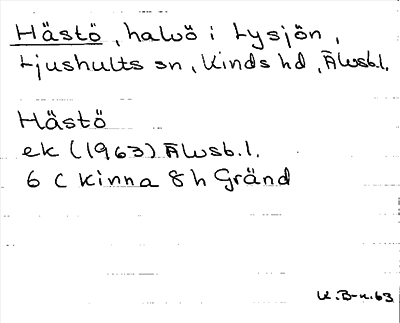 Hästö, halvö i Lysjön,
Ljushults sn, Kinds hd, Älvsb.l.
Hästö
ek (1963) Älvsb.l.
6 C Kinna 8 h Gränd
K.B-n.63